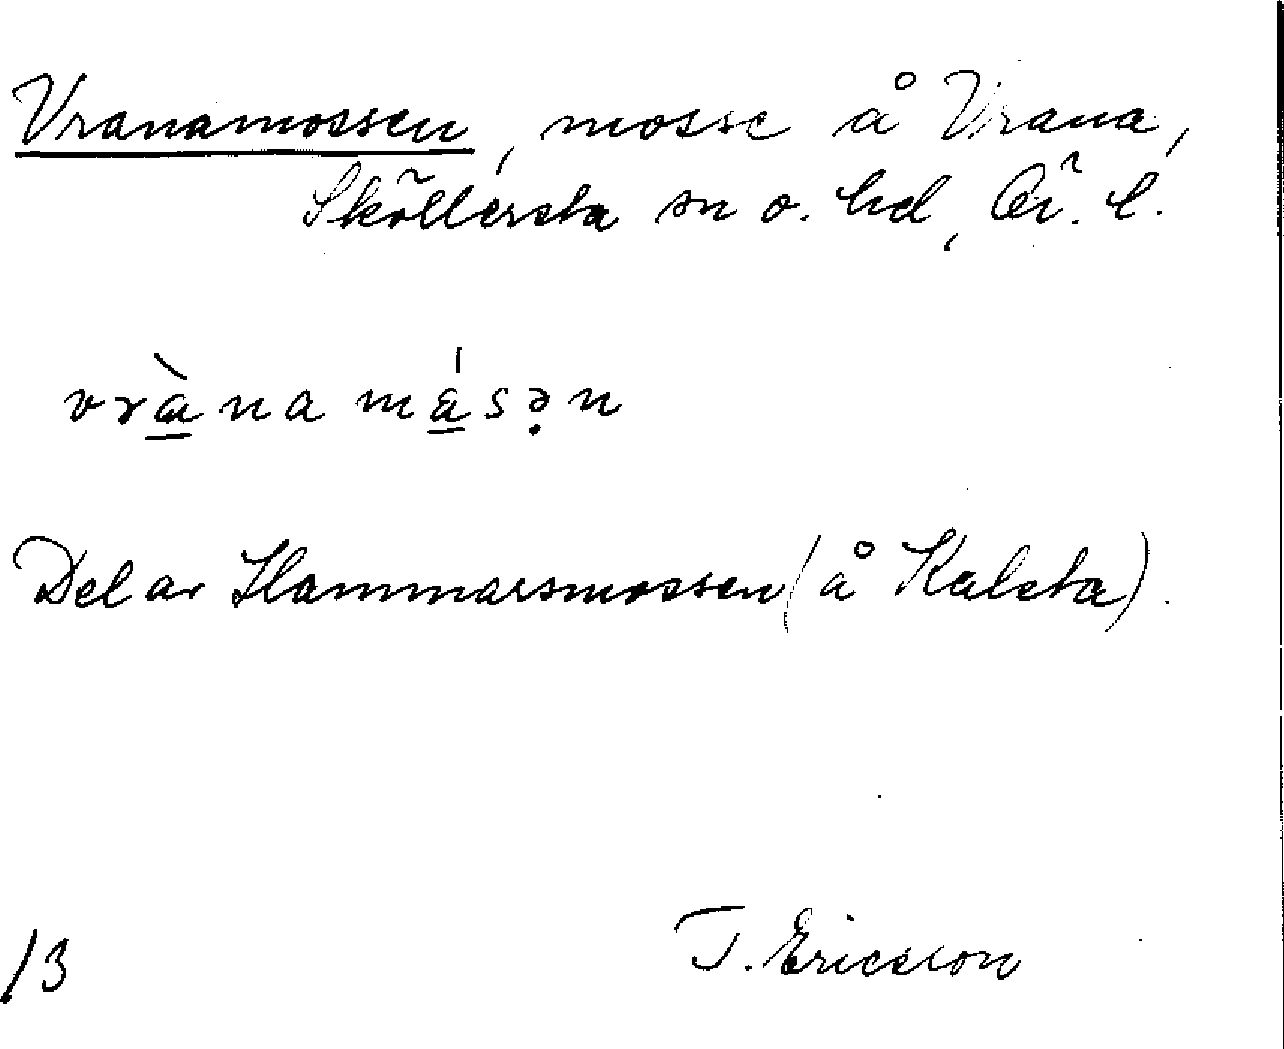 Vranamossen, mosse å Vrana,
Sköllersta sn o. hd, Ör. l.
vrànamásə̣n
Del av Hammarsmossen (å Kalsta).
T. Ericsson
/3